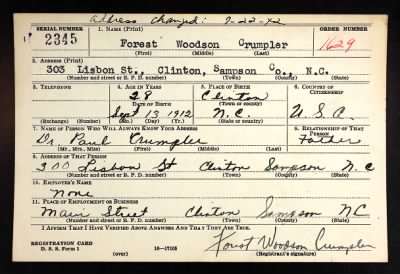 Address Changed: 7-20-42
SERIAL NUMBER 1. NAME (Print) ORDER NUMBER
2345 Forest Woodson Crumpler 1629
(First) (Middle) (Last)
2. ADDRESS (Print)
303 Lisbon St., Clinton, Sampson Co., N.C.
(Number and street or R. F. D. number) (Town) (County) (State)
3. TELEPHONE 4. AGE IN YEARS 5. PLACE OF BIRTH 6. COUNTRY OF CITIZENSHIP
28 Clinton
DATE OF BIRTH (Town or county)
Sept 13 1912 N.C. U.S.A.
(Exchange) (No.) (Mo.) (Day) (Yr.) (State or country)
7. NAME OF PERSON WHO WILL ALWAYS KNOW YOUR ADDRESS 8. RELATIONSHIP OF THAT PERSON
Dr Paul Crumpler Father
(Mr., Mrs., Miss) (First) (Middle) (Last)
9. ADDRESS OF THAT PERSON
300 Lisbon St Clinton Sampson N.C
(Number and street or R. F. D. number) (Town) (County) (State)
10. EMPLOYER'S NAME
None
11. PLACE OF EMPLOYMENT OR BUSINESS
Main Street Clinton Sampson NC
(Number and street or R. F. D. number) (Town) (County) (State)
I AFFIRM THAT I HAVE VERIFIED ABOVE ANSWERS AND THAT THEY ARE TRUE.
REGISTRATION CARD
D. S. S. Form 1 16—17105 Forest Woodson Crumpler
(over) (Registrant's signature)